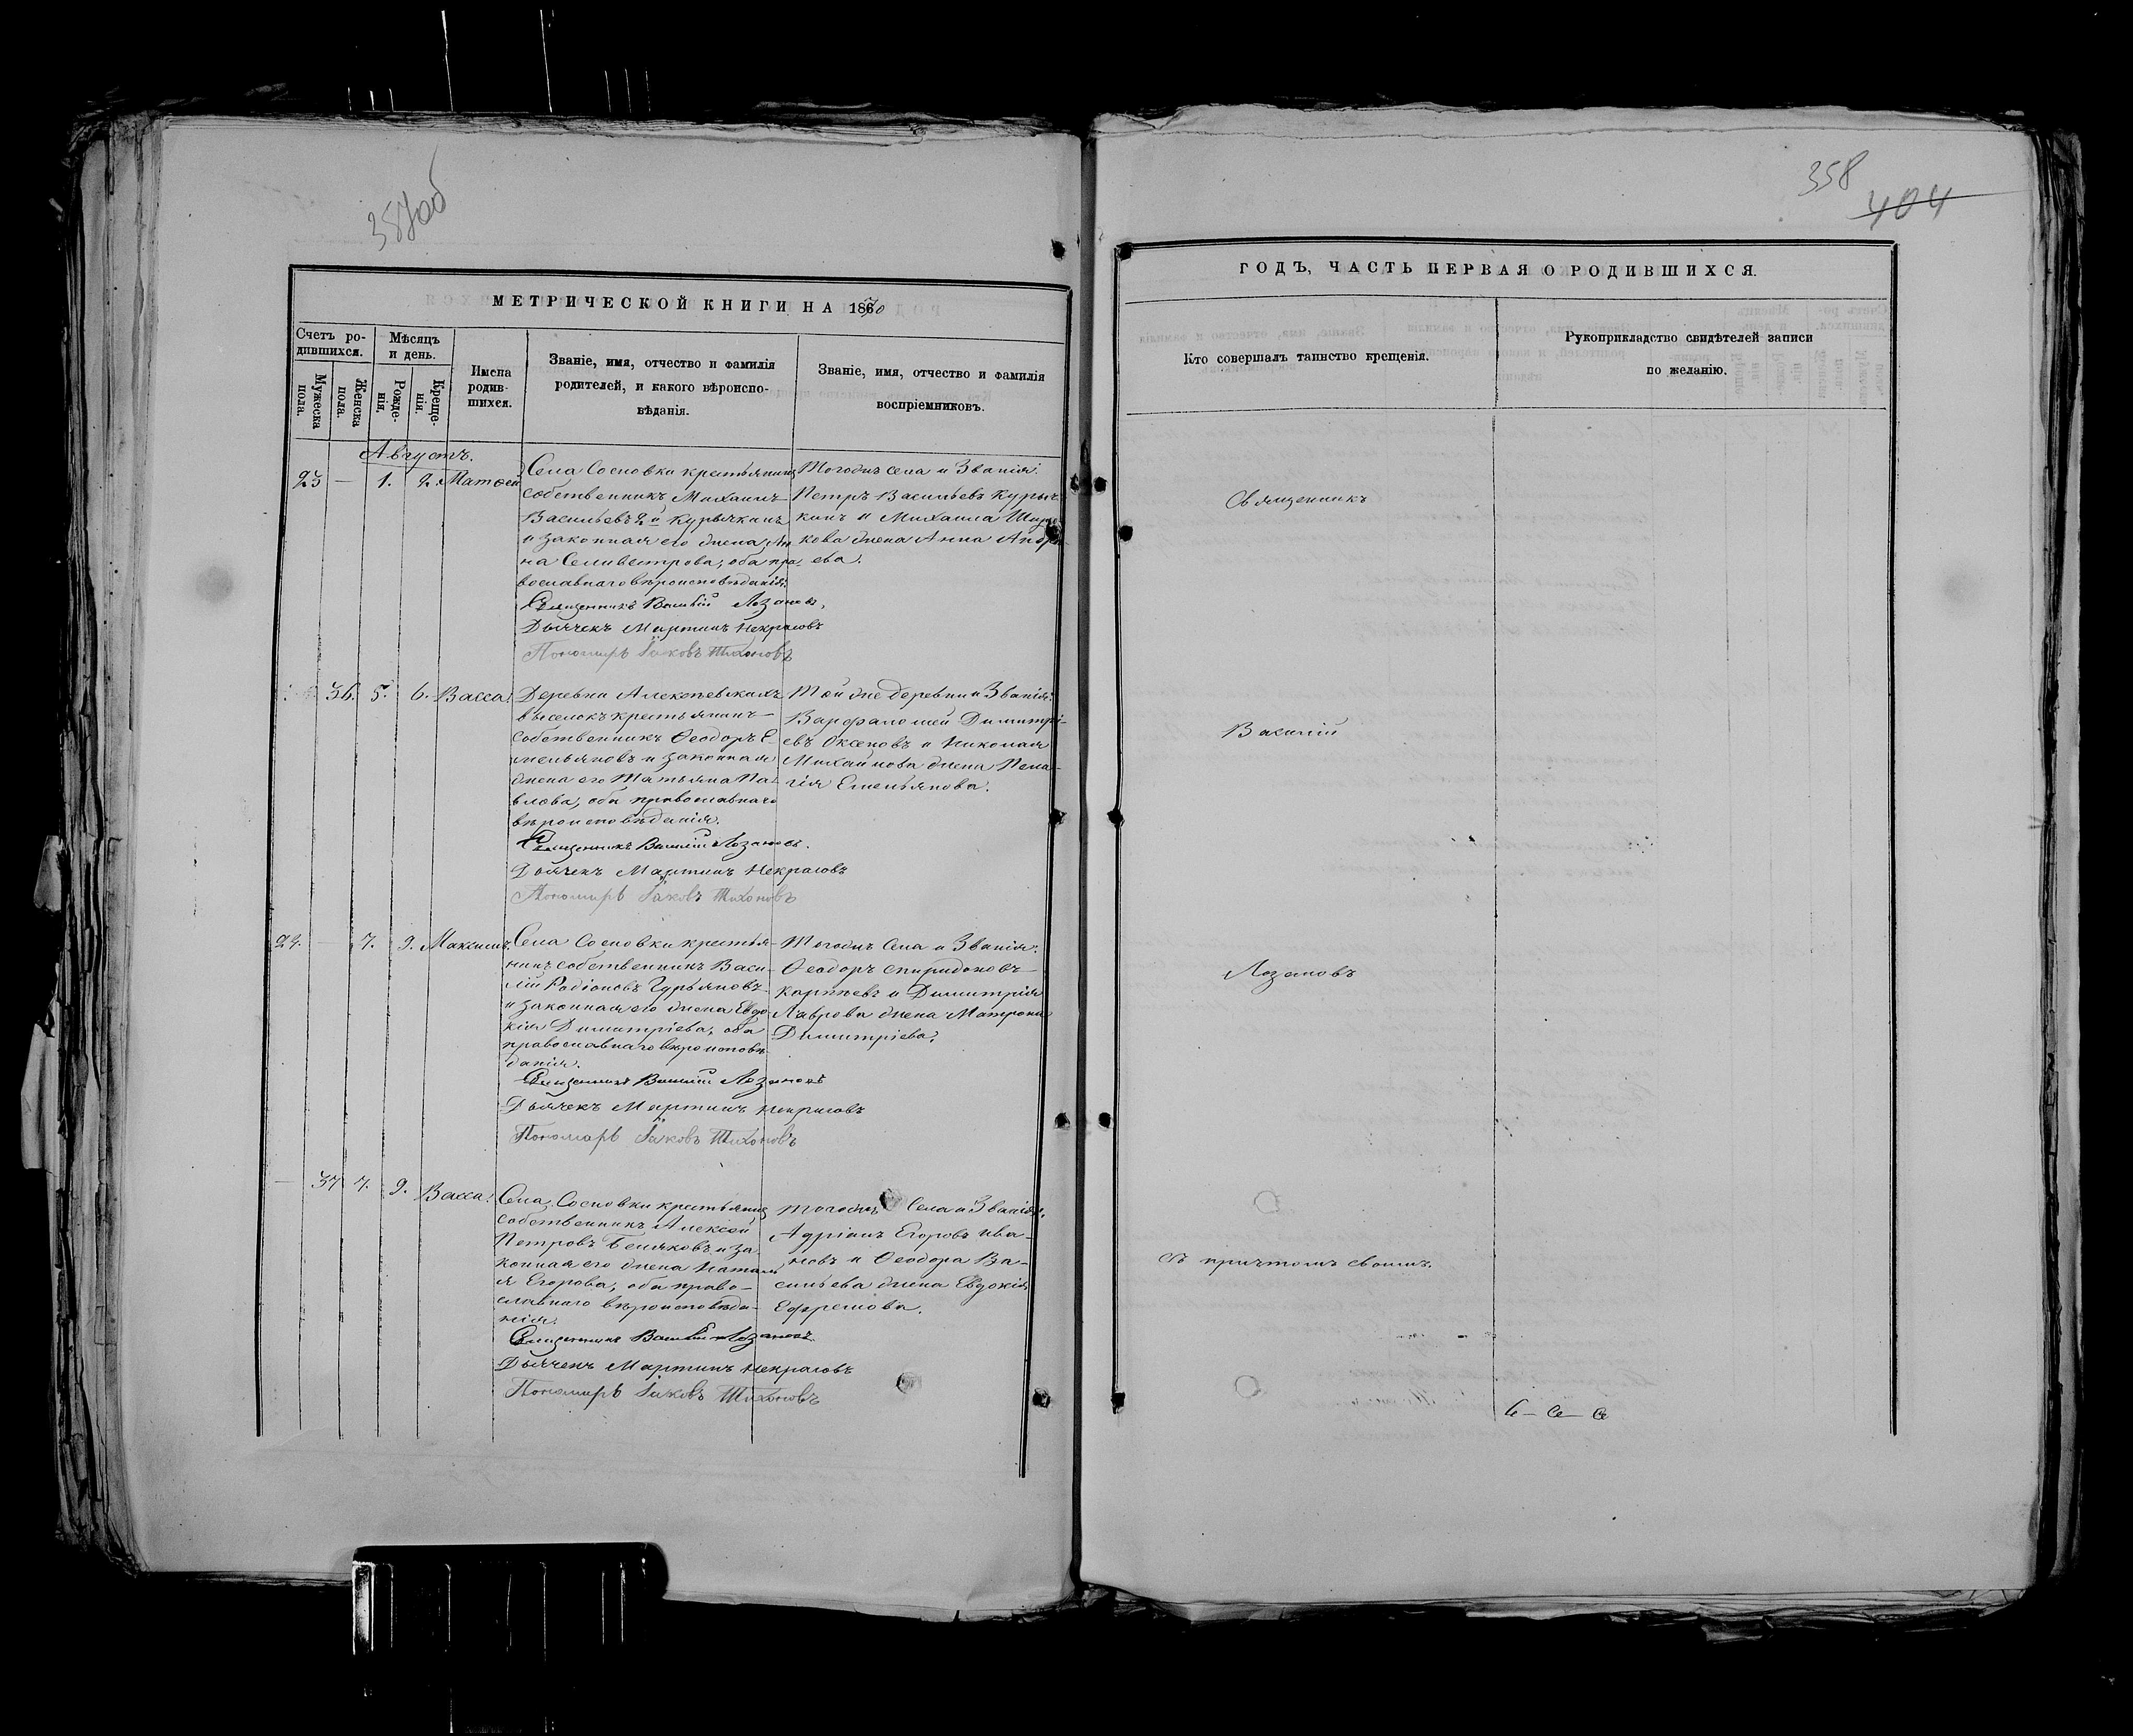 357об
МЕТРИЧЕСКОЙ КНИГИ НА 1870
Счетъ ро-
дившихся.
Мужеска
пола.
Женска
пола.
Мѣсяцъ
и день.
Рожде-
нія.
Креще-
нія.
Имена
родив-
шихся.
Званіе, имя, отчество и фамилія
родителей, и какого вѣроиспо-
вѣданія.
Званіе, имя, отчество и фамилія
воспріемниковъ.
Августъ.
23 — 1. 2. Матѳей
Села Сосновки крестьянинъ
собственникъ Михаилъ
Васильевъ 2й Курычкинъ
и законная его жена Ан
на Селивестрова, оба пра
вославнаго вѣроисповѣданія.
Священникъ Василій Лозановъ.
Дьячекъ Мартинъ Некрасовъ
Пономарь Іаковъ Тихоновъ
Тогожъ села и Званія.
Петръ Васильевъ Куры
кинъ и Михаила
кова жена Анна Андре
ева.
36. 5. 6. Васса.
Деревни Алексѣевскихъ
выселокъ крестьянинъ
собственникъ Ѳеодоръ Е
мельяновъ и законная
жена его Татьяна Па
влова, оба православнаго
вѣроисповѣданія.
Священникъ Василій Лозановъ.
Дьячекъ Мартинъ Некрасовъ
Пономарь Іаковъ Тихоновъ
Той же деревни и Званія.
Варфаломей Димитрі-
евъ Оксеновъ и Николая
Михайлова жена Пела-
гія Емельянова.
24. — 7. 9. Максимъ.
Села Сосновки крестья-
нинъ собственникъ Васи-
лій Родіоновъ Гурьяновъ
и законная его жена Евдо
кія Димитріева, оба
православнаго вѣроисповѣ-
данія.
Священникъ Василій Лозановъ
Дьячекъ Мартинъ Некрасовъ
Пономарь Іаковъ Тихоновъ
Тогожъ Села и Званія.
Ѳеодоръ Спиридоновъ
Карпѣевъ и Димитрія
Лаврова жена Матрона
Димитріева.
— 37 7. 9. Васса.
Села Сосновки крестьянинъ
собственникъ Алексѣй
Петровъ Беляковъ и за
конная его жена Натал
я Егорова, оба право-
славнаго вѣроисповѣда-
нія.
Священникъ Василій Лозановъ
Дьячекъ Мартинъ Некрасовъ
Пономарь Іаковъ Тихоновъ
Тогожъ Села и Званія.
Адріанъ Егоровъ Ива-
новъ и Ѳеодора Ва-
сильева жена Евдокія
Ефремова.
358
404
ГОДЪ, ЧАСТЬ ПЕРВАЯ О РОДИВШИХСЯ.
Кто совершалъ таинство крещенія.
Рукоприкладство свидѣтелей записи
по желанію.
Священникъ
Василій
Лозановъ
съ причтомъ своимъ.